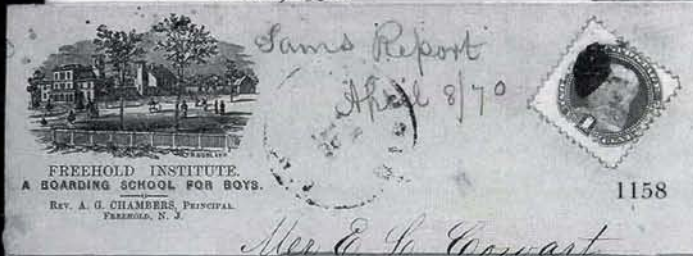 Sams Report
April 8/70
FREEHOLD INSTITUTE.
A BOARDING SCHOOL FOR BOYS.
REV. A. G. CHAMBERS, PRINCIPAL.
FREEHOLD, N. J.
1158
E. Cowart